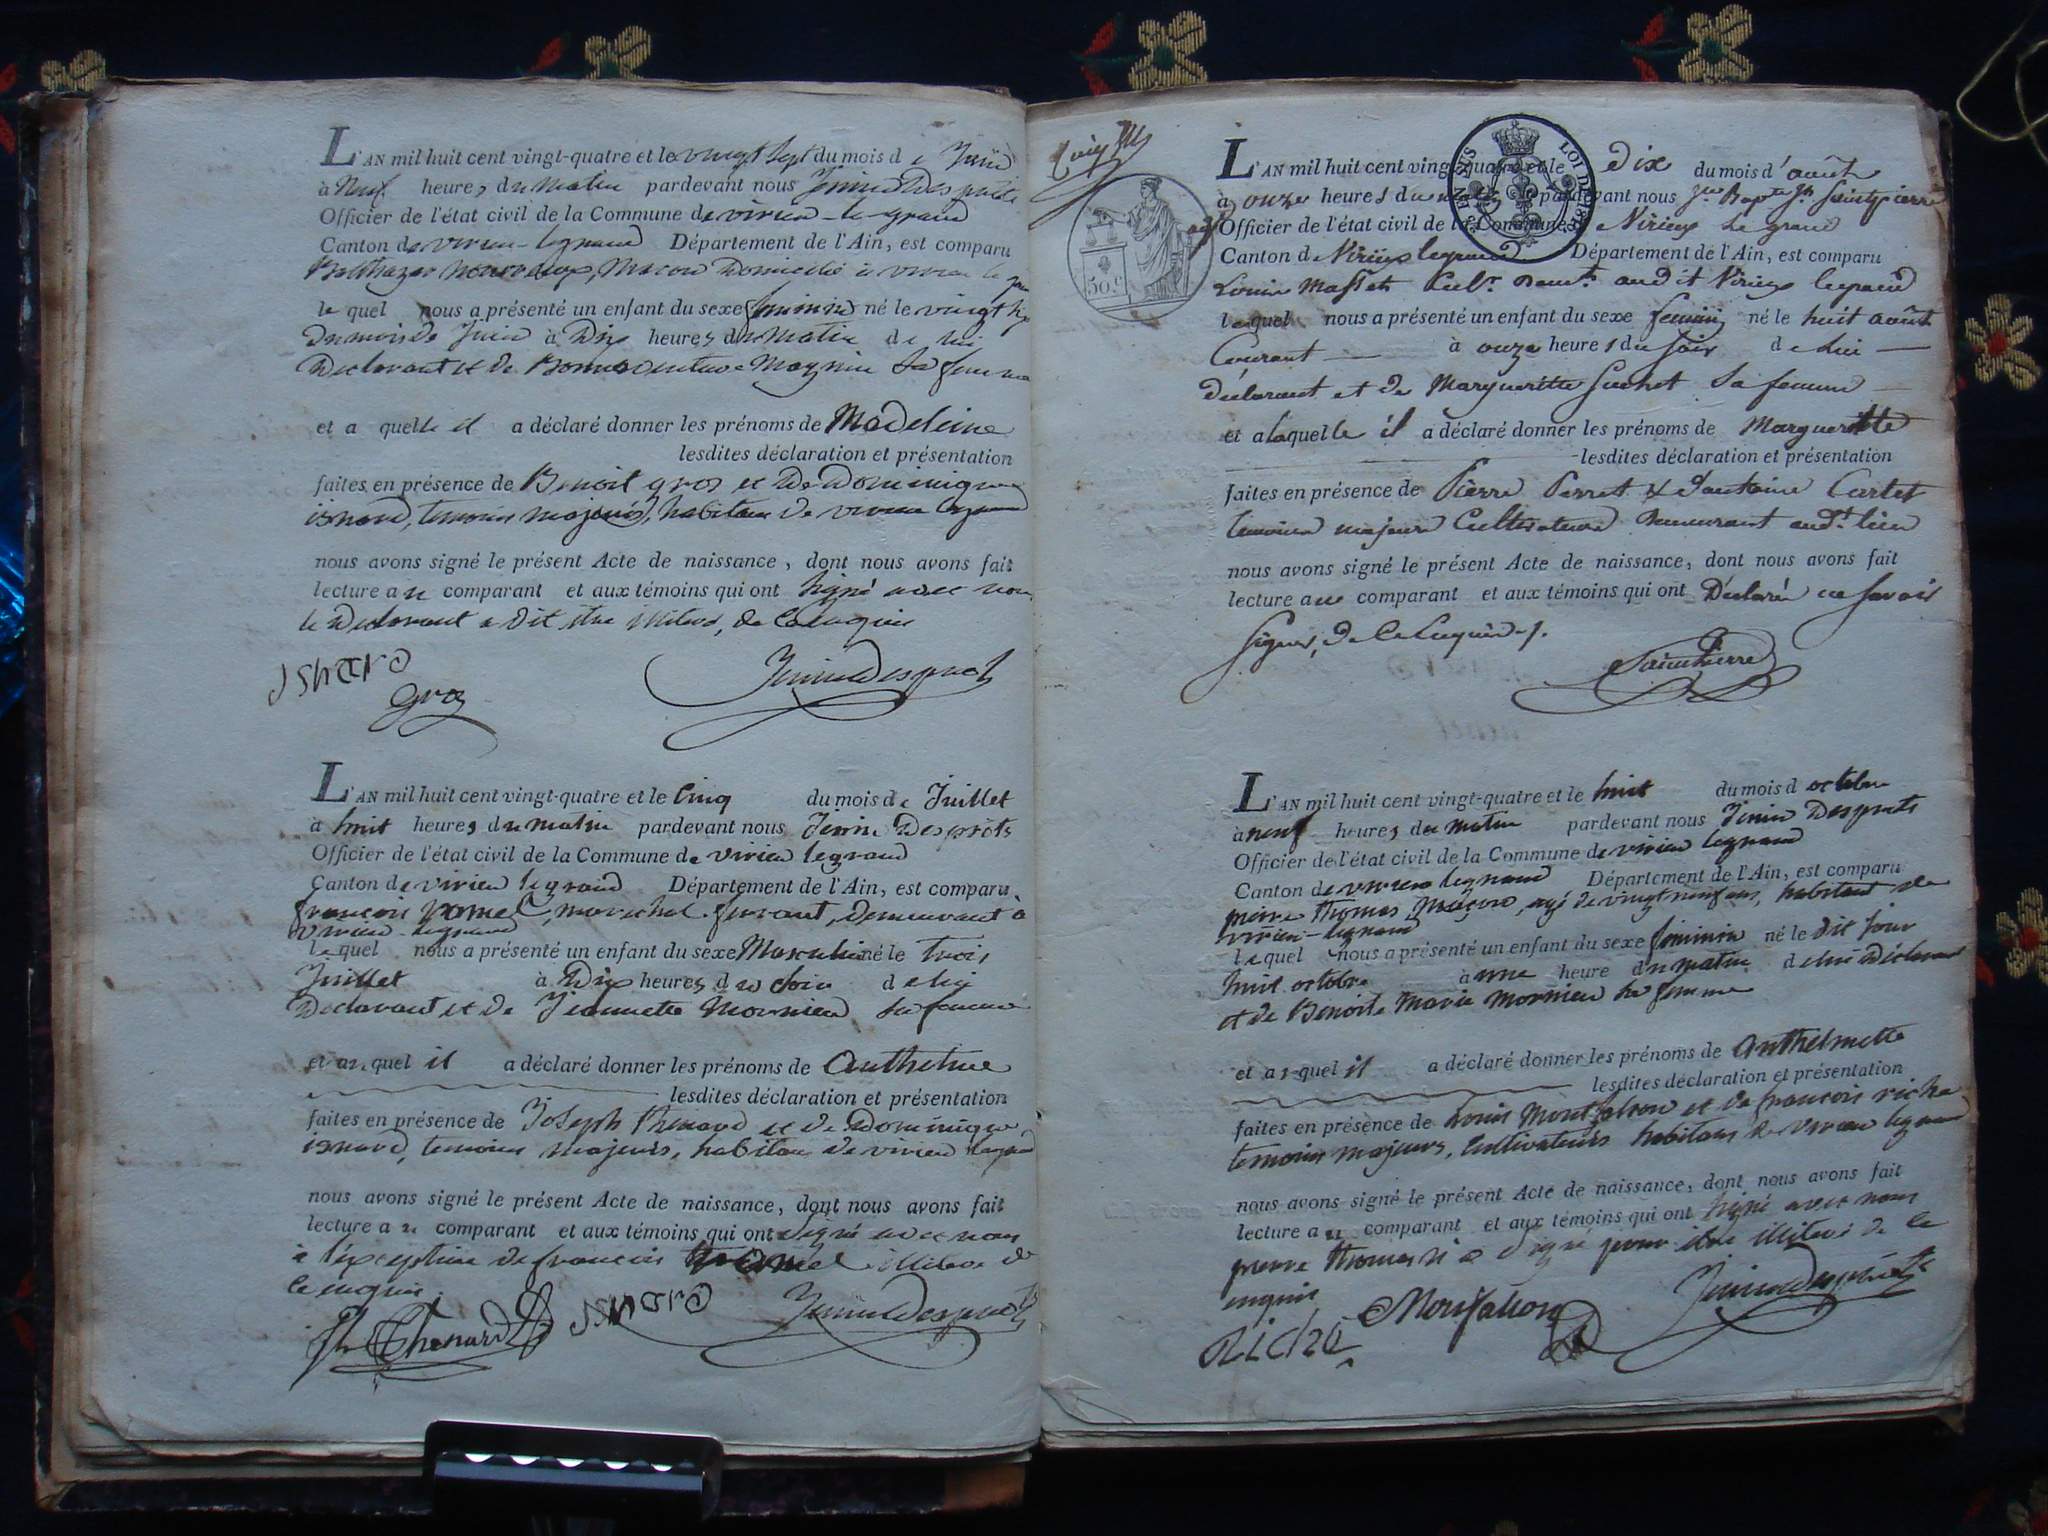 L'AN mil huit cent vingt-quatre et le vingt sept du mois de Juin
à Neuf heures du matin pardevant nous Jenin Desprots
Officier de l'état civil de la Commune de virieu-le-grand
Canton de virieu-legrand Département de l'Ain, est comparu
Balthazar Macon Domicilié à virieu le
le quel nous a présenté un enfant du sexe feminin né le vingt
du mois de Juin à Dix heures du matin de lui
Declarant et de Bonnaventure Magnin Sa femme
et a quelle il a déclaré donner les prénoms de Madeleine
lesdites déclaration et présentation
faites en présence de Benoit gros et de Dominique
isnard, temoins majeurs, habitans de virieu legrand
nous avons signé le présent Acte de naissance, dont nous avons fait
lecture au comparant et aux témoins qui ont signé avec nous
le Declarant a dit être illiteré, de ce enquis
isnard
gros
Jenin Desprots
L'AN mil huit cent vingt-quatre et le Cinq du mois de Juillet
à huit heures du matin pardevant nous Jenin Desprots
Officier de l'état civil de la Commune de virieu legrand
Canton de virieu legrand Département de l'Ain, est comparu
françois marechal ferrant, demeurant à
virieu-legrand
le quel nous a présenté un enfant du sexe Masculin né le trois
Juillet à Dix heures du soir de lui
Declarant et de Jeannette Mornieu sa femme
et au quel il a déclaré donner les prénoms de Anthelme
lesdites déclaration et présentation
faites en présence de Joseph Thenard et de Dominique
isnard, temoins majeurs, habitans de virieu legrand
nous avons signé le présent Acte de naissance, dont nous avons fait
lecture au comparant et aux témoins qui ont signé avec nous
à l'exception de françois illiteré de
ce enquis.
Jh Thenard isnard Jenin Desprots
30.c
LOI DE
L'AN mil huit cent vingt-quatre et le Dix du mois d'août
à onze heures du matin pardevant nous Jn Bapte Jh Saintpierre
Officier de l'état civil de la Commune de Virieux le grand
Canton de Virieux legrand Département de l'Ain, est comparu
Louis Masset Cultr demt audit Virieux legrand
lequel nous a présenté un enfant du sexe feminin né le huit août
Courant à onze heures du soir de lui
déclarant et de Margueritte Guchet sa femme
et a laquelle il a déclaré donner les prénoms de Margueritte
lesdites déclaration et présentation
faites en présence de Pierre Perret & d'antoine Cartet
temoins majeurs Cultivateurs demeurant audt lieu
nous avons signé le présent Acte de naissance, dont nous avons fait
lecture au comparant et aux témoins qui ont Déclaré ne savoir
signer, de ce Enquis.
Saintpierre
L'AN mil huit cent vingt-quatre et le huit du mois d octobre
à neuf heures du matin pardevant nous Jenin Desprots
Officier de l'état civil de la Commune de virieu legrand
Canton de virieu legrand Département de l'Ain, est comparu
pierre thomas Maçon, agé de vingt neuf ans, habitant de
virieu-legrand
le quel nous a présenté un enfant du sexe feminin né le dit jour
huit octobre à une heure du matin de lui Déclarant
et de Benoite Marie Mornieu sa femme
et a quel il a déclaré donner les prénoms de anthelmette
lesdites déclaration et présentation
faites en présence de Louis Montfalcon et de françois riche
temoins majeurs, Cultivateurs habitans de virieu legrand
nous avons signé le présent Acte de naissance, dont nous avons fait
lecture au comparant et aux témoins qui ont signé avec nous
pierre thomas n'a signé pour être illiteré de ce
enquis
Riche Monfalcon Jenin Desprots